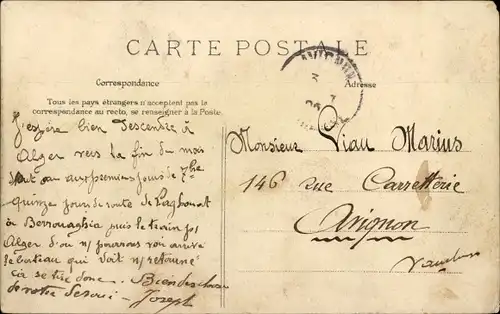 CARTE POSTALE
Correspondance
Adresse
Tous les pays étrangers n'acceptent pas la
correspondance au recto, se renseigner à la Poste.
J'espère bien descendre à
Alger vers la fin du mois
d'Août ou aux premiers jours de 7bre
quinze jours de route de Laghouat
à Berrouaghia puis le train pr
Alger d'où ns pourrons voir arriver
le bateau qui doit ns
se tire donc. Bien des choses
de votre Joseph
AVIGNON
Monsieur Viau Marius
146 rue Carretterie
Avignon
Vaucluse